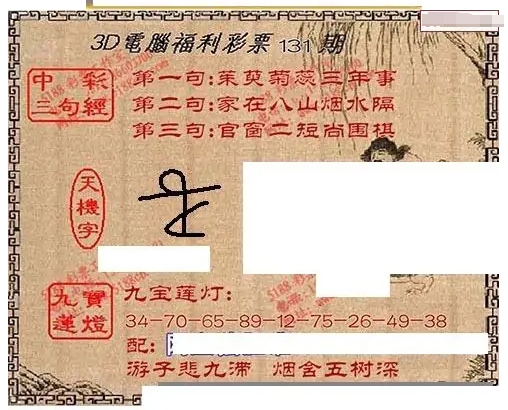 3D電腦福利彩票131期
中彩三句經
第一句:茱萸菊蕊三年事
第二句:家在八山烟水隔
第三句:官窗二短尚围棋
天機字
九寶蓮燈
九宝莲灯:
34-70-65-89-12-75-26-49-38
配:
游子悲九滞 烟含五树深